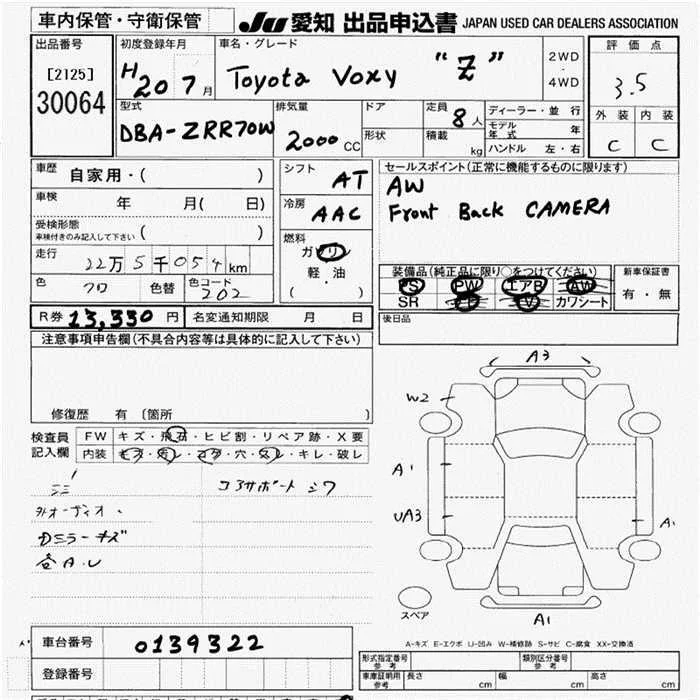 車内保管・守衛保管 JU 愛知 出品申込書 JAPAN USED CAR DEALERS ASSOCIATION
出品番号 初度登録年月 車名・グレード 評価点
[2125] H 20 7月 Toyota Voxy "Z" 2WD・4WD 3.5
30064 型式 排気量 ドア 定員 8人 ディーラー・並行 外装 内装
DBA-ZRR70W 2000CC 形状 積載 kg モデル年式 年 C C
ハンドル 左・右
車歴 自家用・( ) シフト AT セールスポイント(正常に機能するものに限ります)
車検 年 月( 日) 冷房 AAC AW
受検形態 Front Back CAMERA
車検付きのみ記入して下さい ( )
燃料
走行 22万5千054km ガソリン 装備品(純正品に限り○をつけてください) 新車保証書
色 クロ 色替 色コード 202 軽・油 PS PW エアB AW 有・無
( ) SR TV カワシート
R券 13,330円 名変通知期限 月 日 後日品
注意事項申告欄(不具合内容等は具体的に記入して下さい)
A3
W2
修復歴 有 〔箇所 〕
検査員 FW キズ・飛石・ヒビ割・リペア跡・X要
記入欄 内装 キズ・汚レ・コゲ・穴・スレ・キレ・破レ
A1
コアサポート シワ
外オーディオ
UA3 A1
ドミラーキズ
各A.U
スペア
A1
A-キズ E-エクボ U-凹み W-補修跡 S-サビ C-腐食 XX-交換済
車台番号 0139322
形式指定番号 参考 類別区分番号 参考
登録番号 車庫証明用 参考 長さ cm 幅 cm 高さ cm